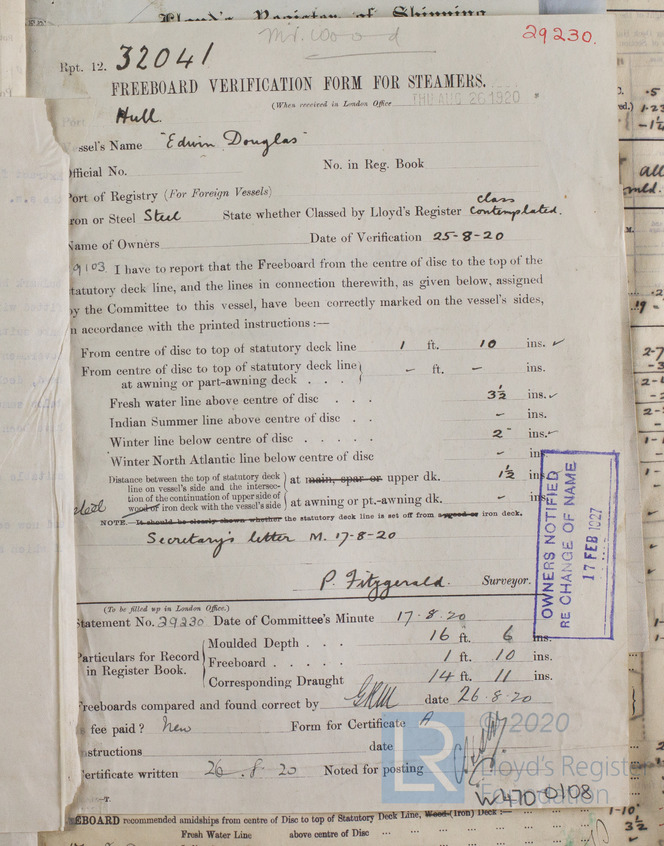 Lloyd's Register of Shipping
Mr. Wood
29230.
Rpt. 12. 32041
FREEBOARD VERIFICATION FORM FOR STEAMERS.
(When received in London Office THU. AUG 26 1920
Port Hull.
essel's Name "Edwin Douglas"
fficial No. No. in Reg. Book
ort of Registry (For Foreign Vessels)
ron or Steel Steel State whether Classed by Lloyd's Register class contemplated.
Name of Owners Date of Verification 25-8-20
9103. I have to report that the Freeboard from the centre of disc to the top of the
tatutory deck line, and the lines in connection therewith, as given below, assigned
by the Committee to this vessel, have been correctly marked on the vessel's sides,
n accordance with the printed instructions :—
From centre of disc to top of statutory deck line 1 ft. 10 ins. ✓
From centre of disc to top of statutory deck line
at awning or part-awning deck . . . - ft. - ins.
Fresh water line above centre of disc . . . 3½ ins. ✓
Indian Summer line above centre of disc . . - ins.
Winter line below centre of disc . . . . . 2 - ins. ✓
Winter North Atlantic line below centre of disc - ins
Distance between the top of statutory deck
line on vessel's side and the intersec-
tion of the continuation of upper side of
steel wood or iron deck with the vessel's side
at main, spar or upper dk. 1½ ins
at awning or pt.-awning dk. - ins
NOTE.—It should be clearly shown whether the statutory deck line is set off from a wood or iron deck.
Secretary's letter M. 17-8-20
P. Fitzgerald. Surveyor.
OWNERS NOTIFIED
RE CHANGE OF NAME
17 FEB 1927
(To be filled up in London Office.)
Statement No. 29230 Date of Committee's Minute 17.8.20
Particulars for Record
in Register Book.
Moulded Depth . . . 16 ft. 6 ins.
Freeboard . . . . . 1 ft. 10 ins.
Corresponding Draught 14 ft. 11 ins.
Freeboards compared and found correct by date 26.8.20
s fee paid? New Form for Certificate A
nstructions date
ertificate written 26.8.20 Noted for posting
—T.
© 2020
LR
Lloyd's Register
Foundation
W470-0108
EBOARD recommended amidships from centre of Disc to top of Statutory Deck Line, Wood (Iron) Deck :— 1-10
Fresh Water Line above centre of Disc 3½